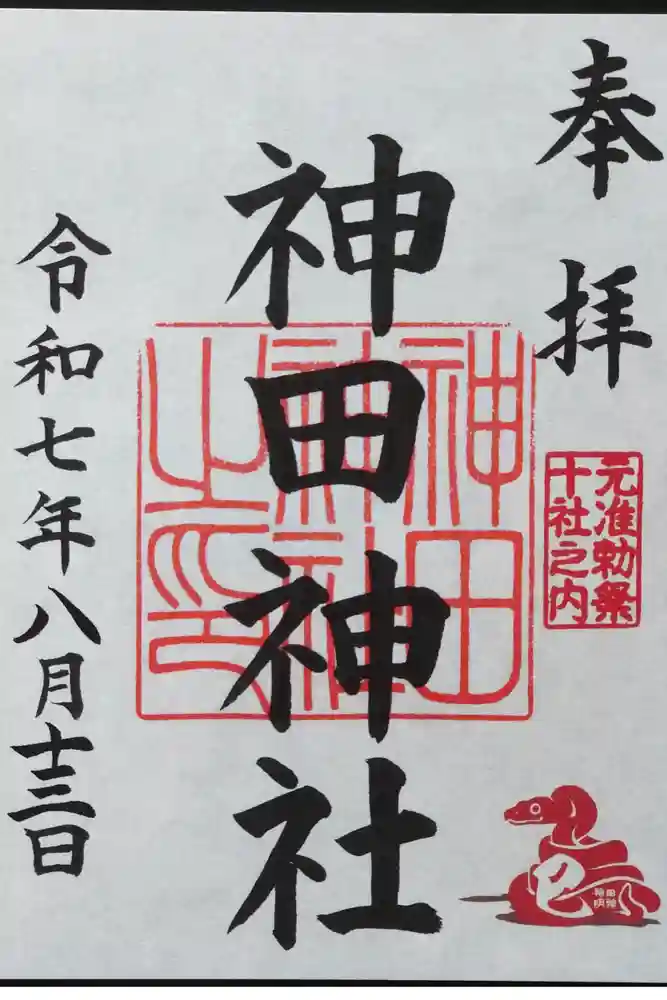 奉拝
元准勅祭
十社之内
神田神社
神田
神社
之印
令和七年八月十三日
巳
神田
明神